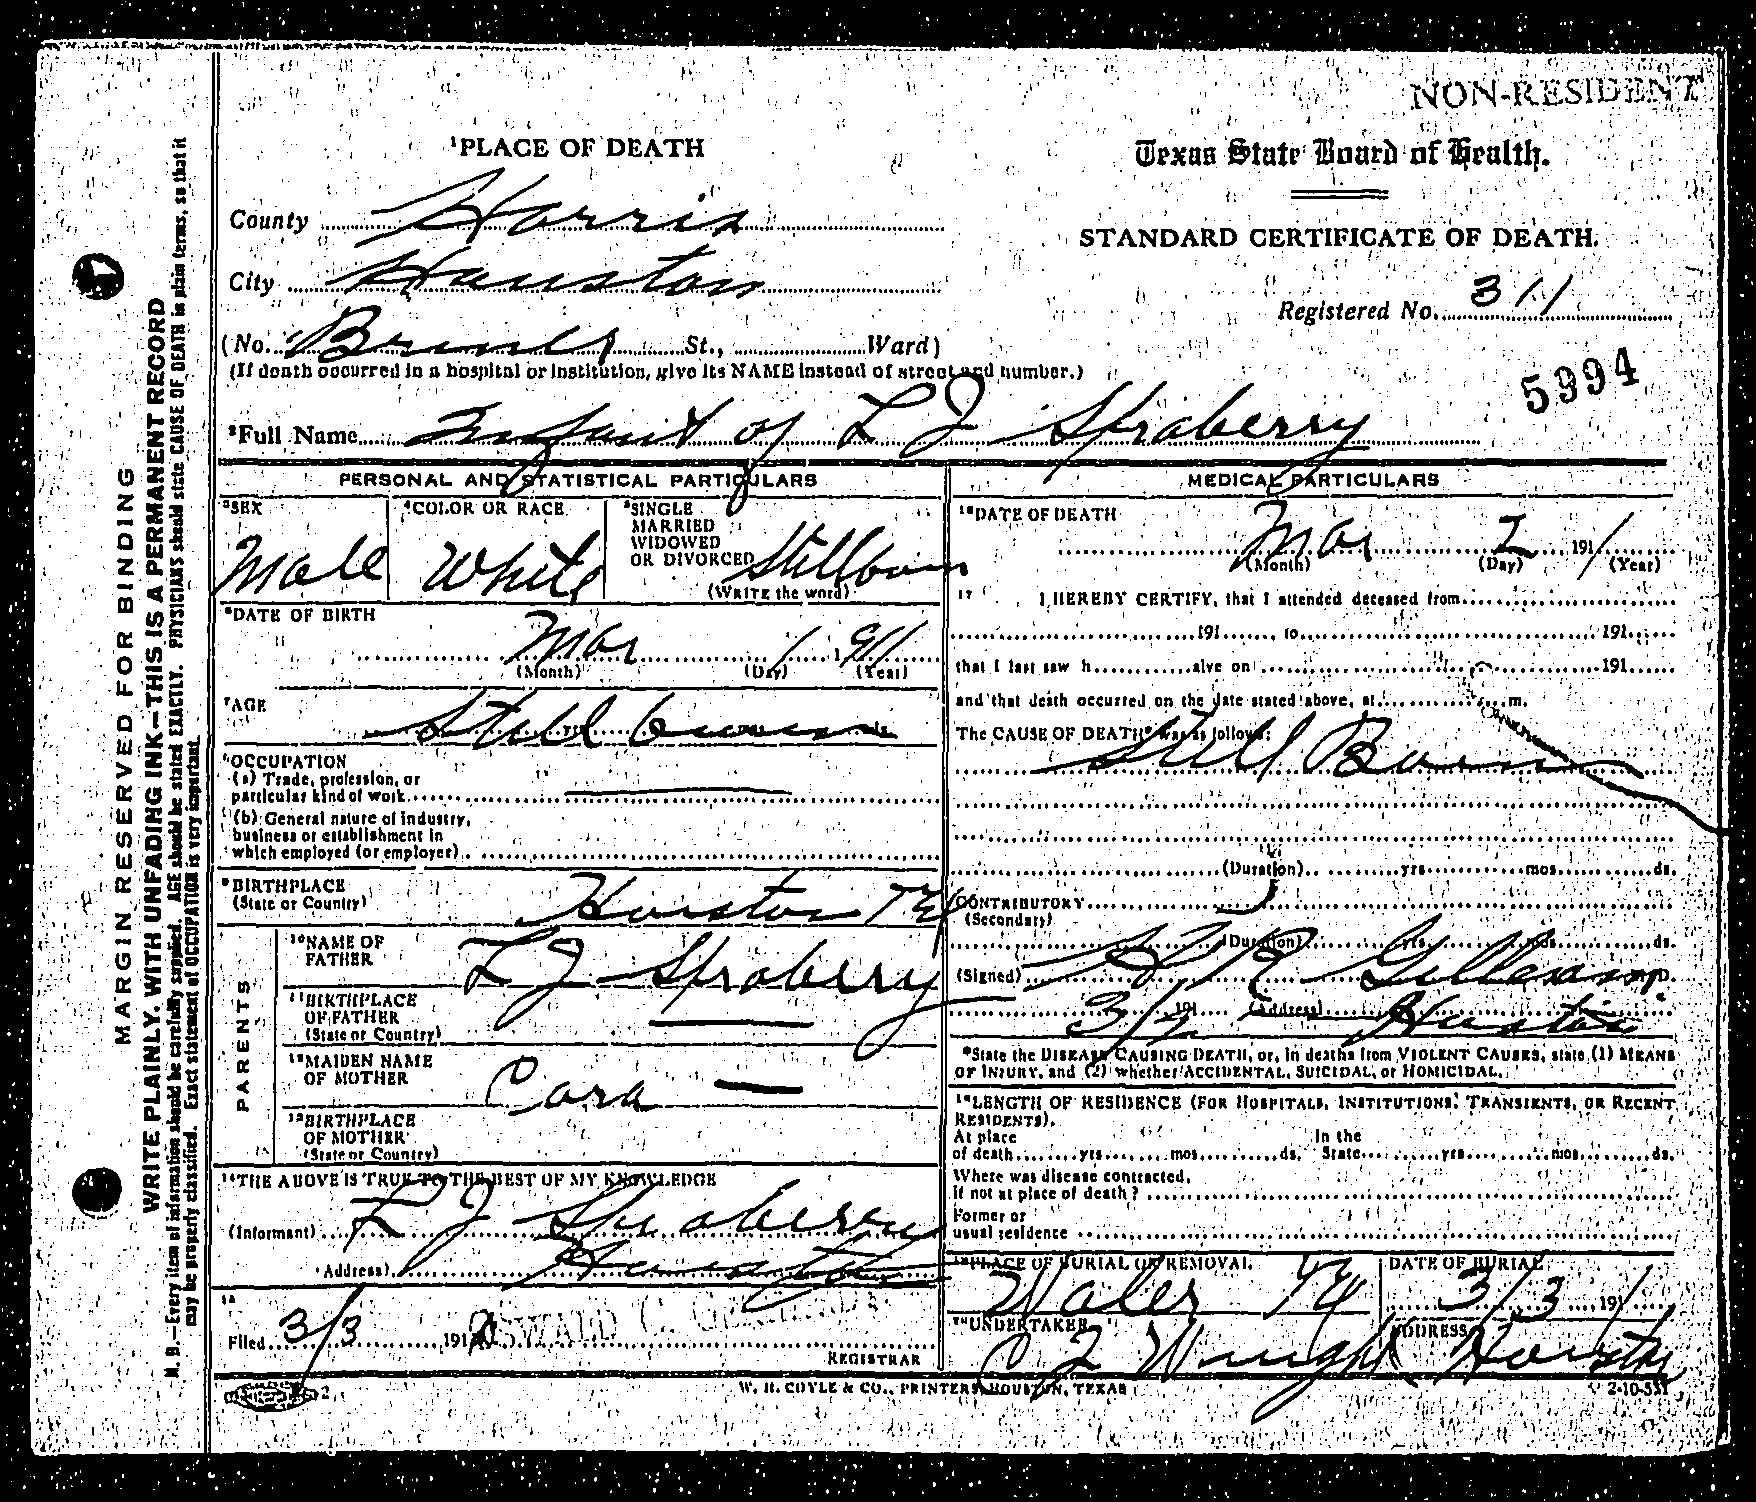 NON-RESIDENT
¹PLACE OF DEATH
Texas State Board of Health.
County Harris
STANDARD CERTIFICATE OF DEATH.
City Houston
Registered No. 311
(No. Bruner St., Ward)
(If death occurred in a hospital or institution, give its NAME instead of street and number.)
5994
²Full Name Infant of L J Spraberry
PERSONAL AND STATISTICAL PARTICULARS
³SEX Male
⁴COLOR OR RACE White
⁵SINGLE
MARRIED
WIDOWED
OR DIVORCED Stillborn
(WRITE the word)
⁶DATE OF BIRTH
Mar 1 1911
(Month) (Day) (Year)
⁷AGE
Still born
⁸OCCUPATION
(a) Trade, profession, or
particular kind of work
(b) General nature of industry,
business or establishment in
which employed (or employer)
⁹BIRTHPLACE
(State or Country) Houston Tex
PARENTS
¹⁰NAME OF
FATHER L J Spraberry
¹¹BIRTHPLACE
OF FATHER
(State or Country)
¹²MAIDEN NAME
OF MOTHER Cora —
¹³BIRTHPLACE
OF MOTHER
(State or Country)
¹⁴THE ABOVE IS TRUE TO THE BEST OF MY KNOWLEDGE
(Informant) L J Spraberry
(Address) Houston
¹⁵
Filed 3/3 191 OSWALD C.
REGISTRAR
MEDICAL PARTICULARS
¹⁶DATE OF DEATH
Mar 2 1911
(Month) (Day) (Year)
¹⁷ I HEREBY CERTIFY, that I attended deceased from
191 , to 191
that I last saw h alve on 191
and that death occurred on the date stated above, at m.
The CAUSE OF DEATH* was as follows:
Still Born
(Duration) yrs. mos. ds.
CONTRIBUTORY
(Secondary)
(Duration) yrs. mos. ds.
(Signed) M.D.
3/2 191 (Address) Houston
*State the DISEASE CAUSING DEATH, or, in deaths from VIOLENT CAUSES, state (1) MEANS
OF INJURY, and (2) whether ACCIDENTAL, SUICIDAL, or HOMICIDAL.
¹⁸LENGTH OF RESIDENCE (FOR HOSPITALS, INSTITUTIONS, TRANSIENTS, OR RECENT
RESIDENTS).
At place In the
of death yrs. mos. ds. State yrs. mos. ds.
Where was disease contracted,
If not at place of death?
Former or
usual residence
¹⁹PLACE OF BURIAL OR REMOVAL
Waller Tex
DATE OF BURIAL
3/3 1911
²⁰UNDERTAKER
C J Wright
ADDRESS
Houston
W. H. COYLE & CO., PRINTERS, HOUSTON, TEXAS
2-10-551
MARGIN RESERVED FOR BINDING
WRITE PLAINLY, WITH UNFADING INK—THIS IS A PERMANENT RECORD
N. B.—Every item of information should be carefully supplied. AGE should be stated EXACTLY. PHYSICIANS should state CAUSE OF DEATH in plain terms, so that it
may be properly classified. Exact statement of OCCUPATION is very important.